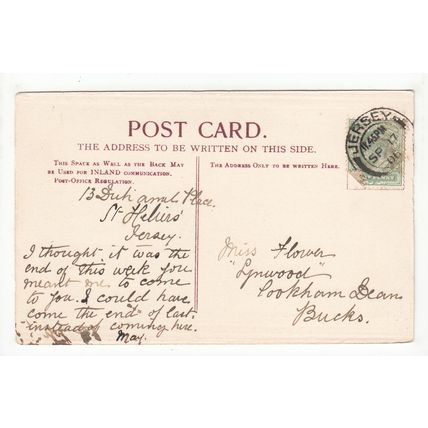 POST CARD.
THE ADDRESS TO BE WRITTEN ON THIS SIDE.
THIS SPACE AS WELL AS THE BACK MAY
BE USED FOR INLAND COMMUNICATION.
POST-OFFICE REGULATION.
THE ADDRESS ONLY TO BE WRITTEN HERE.
JERSEY
SP 7
13 Place
St Heliers'
Jersey.
I thought it was the
end of this week you
meant me to come
to you. I could have
come the end of last,
instead of coming here.
May.
Miss Flower
Lynwood
Cookham Dean
Bucks.